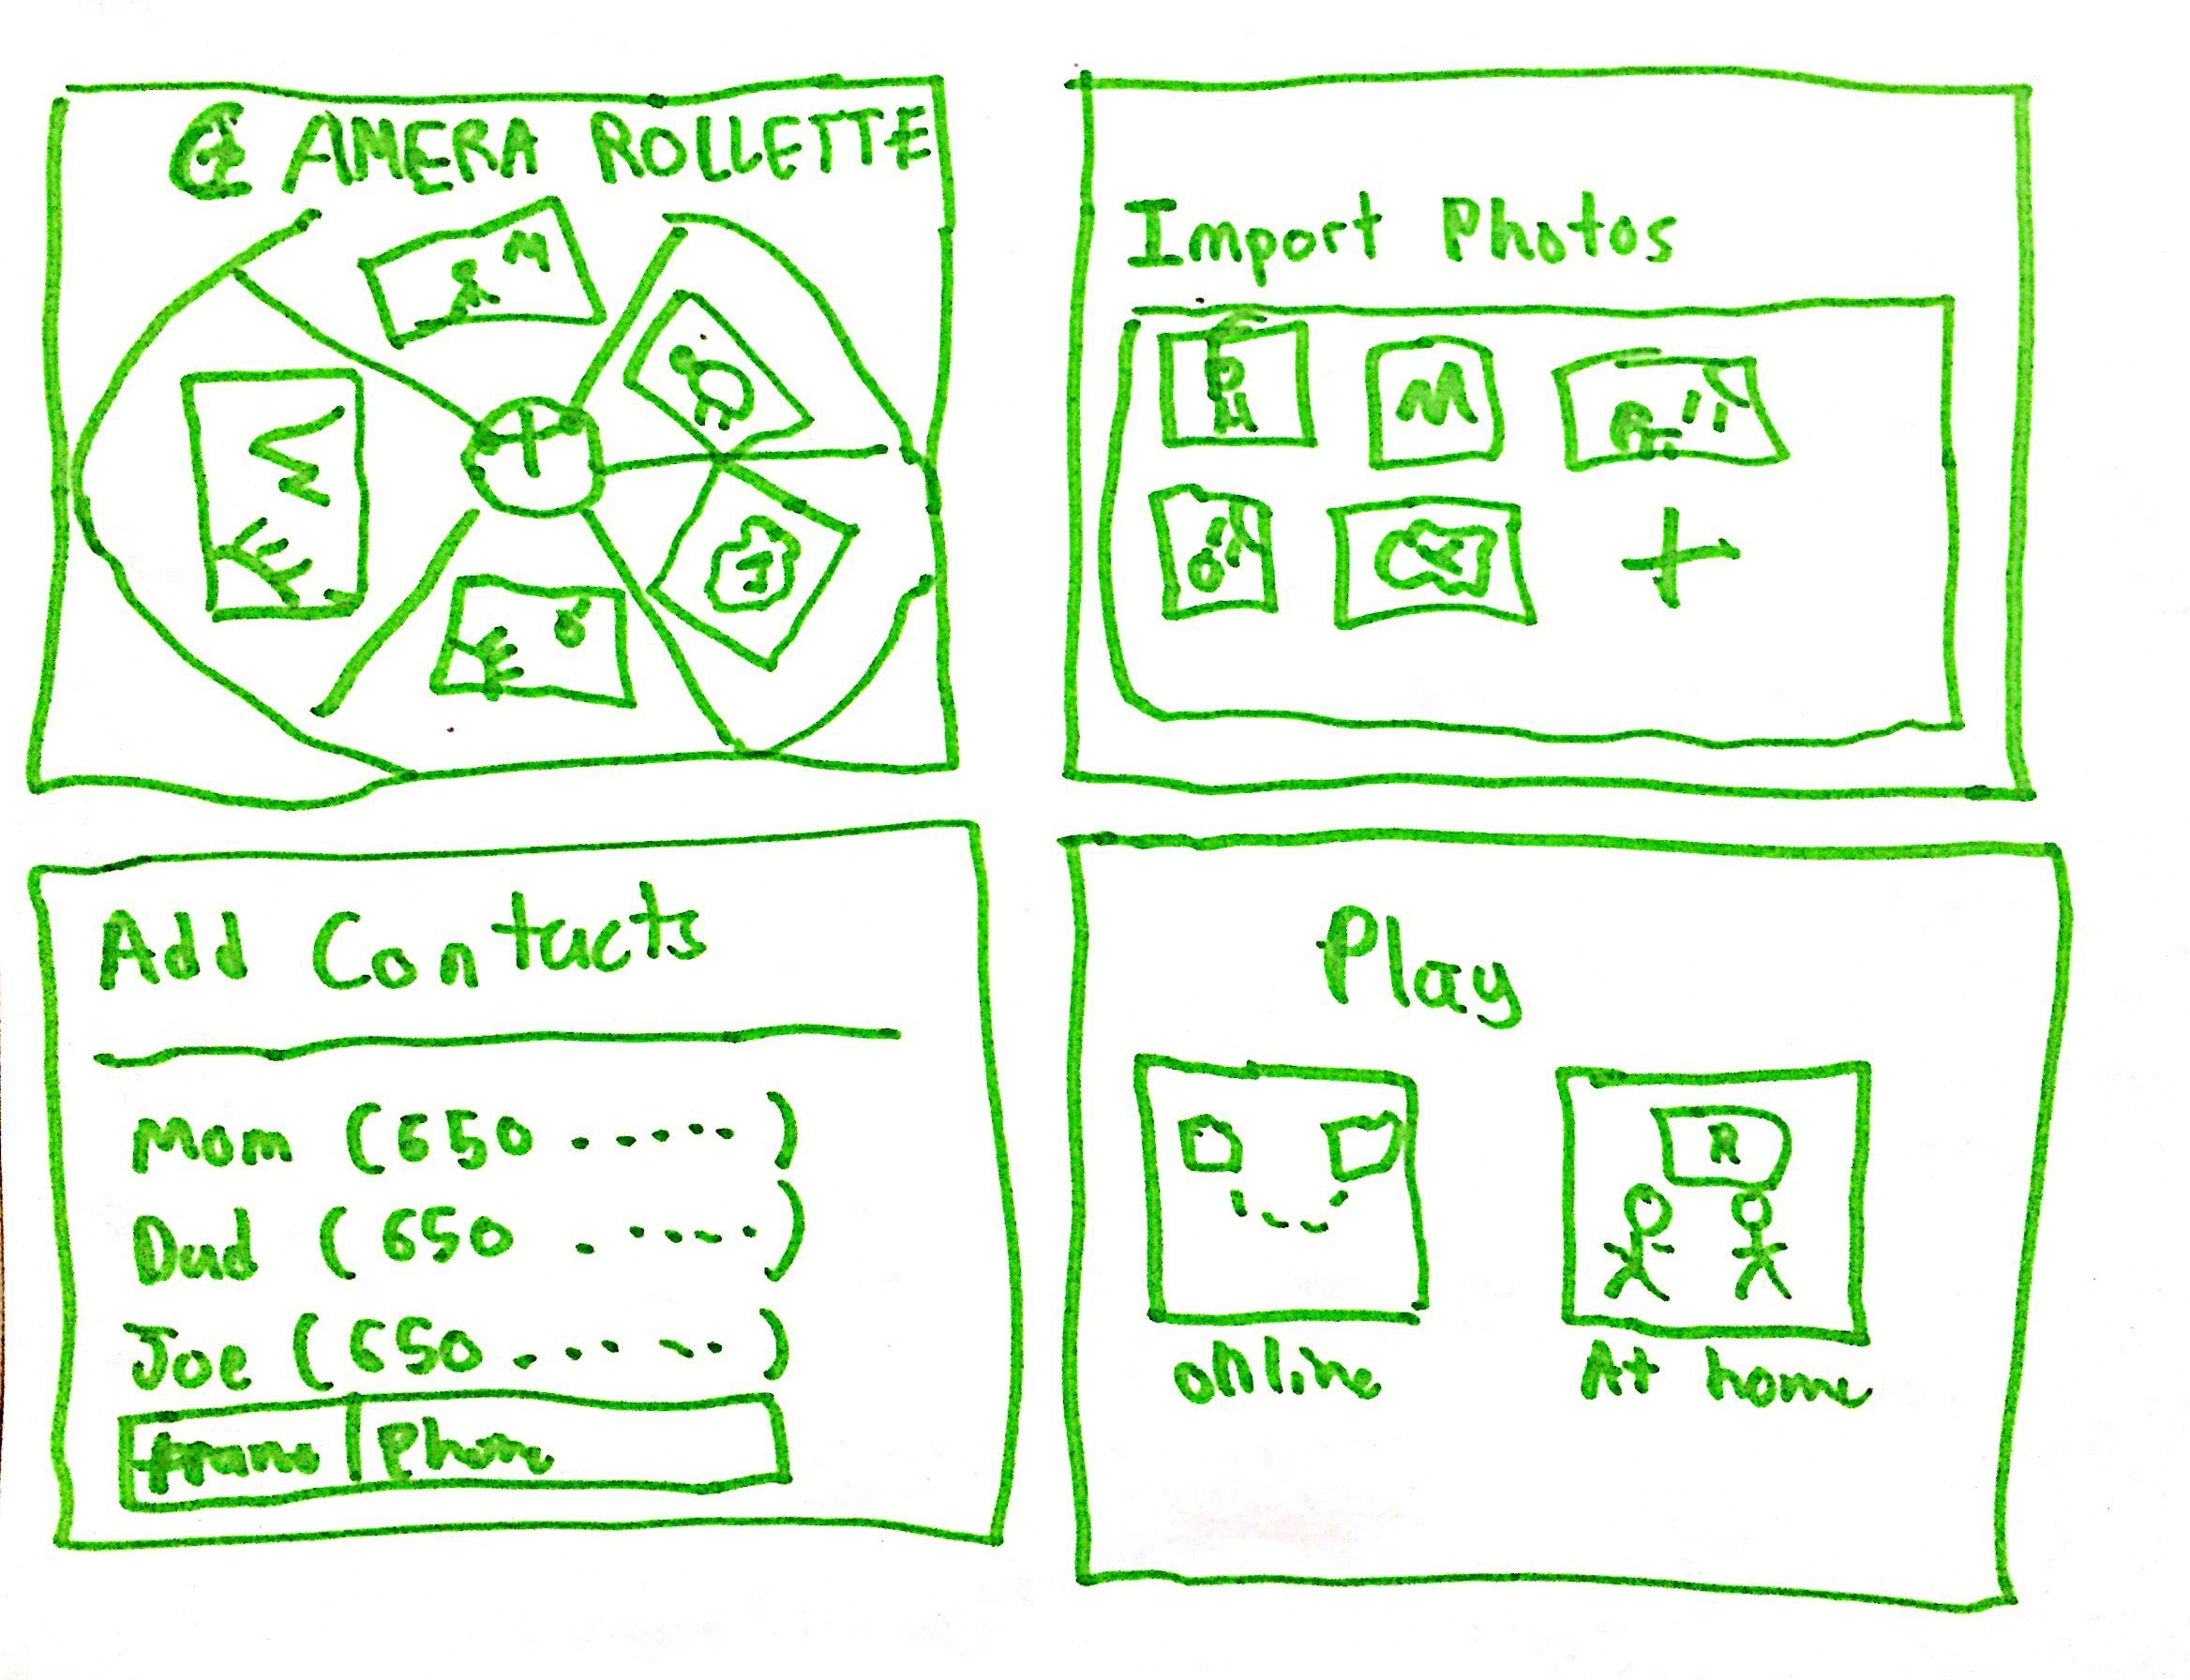 CAMERA ROLLETTE
Import Photos
Add Contacts
Mom (650 .....)
Dad (650 .....)
Joe (650 ......)
Phone
Play
online
At home